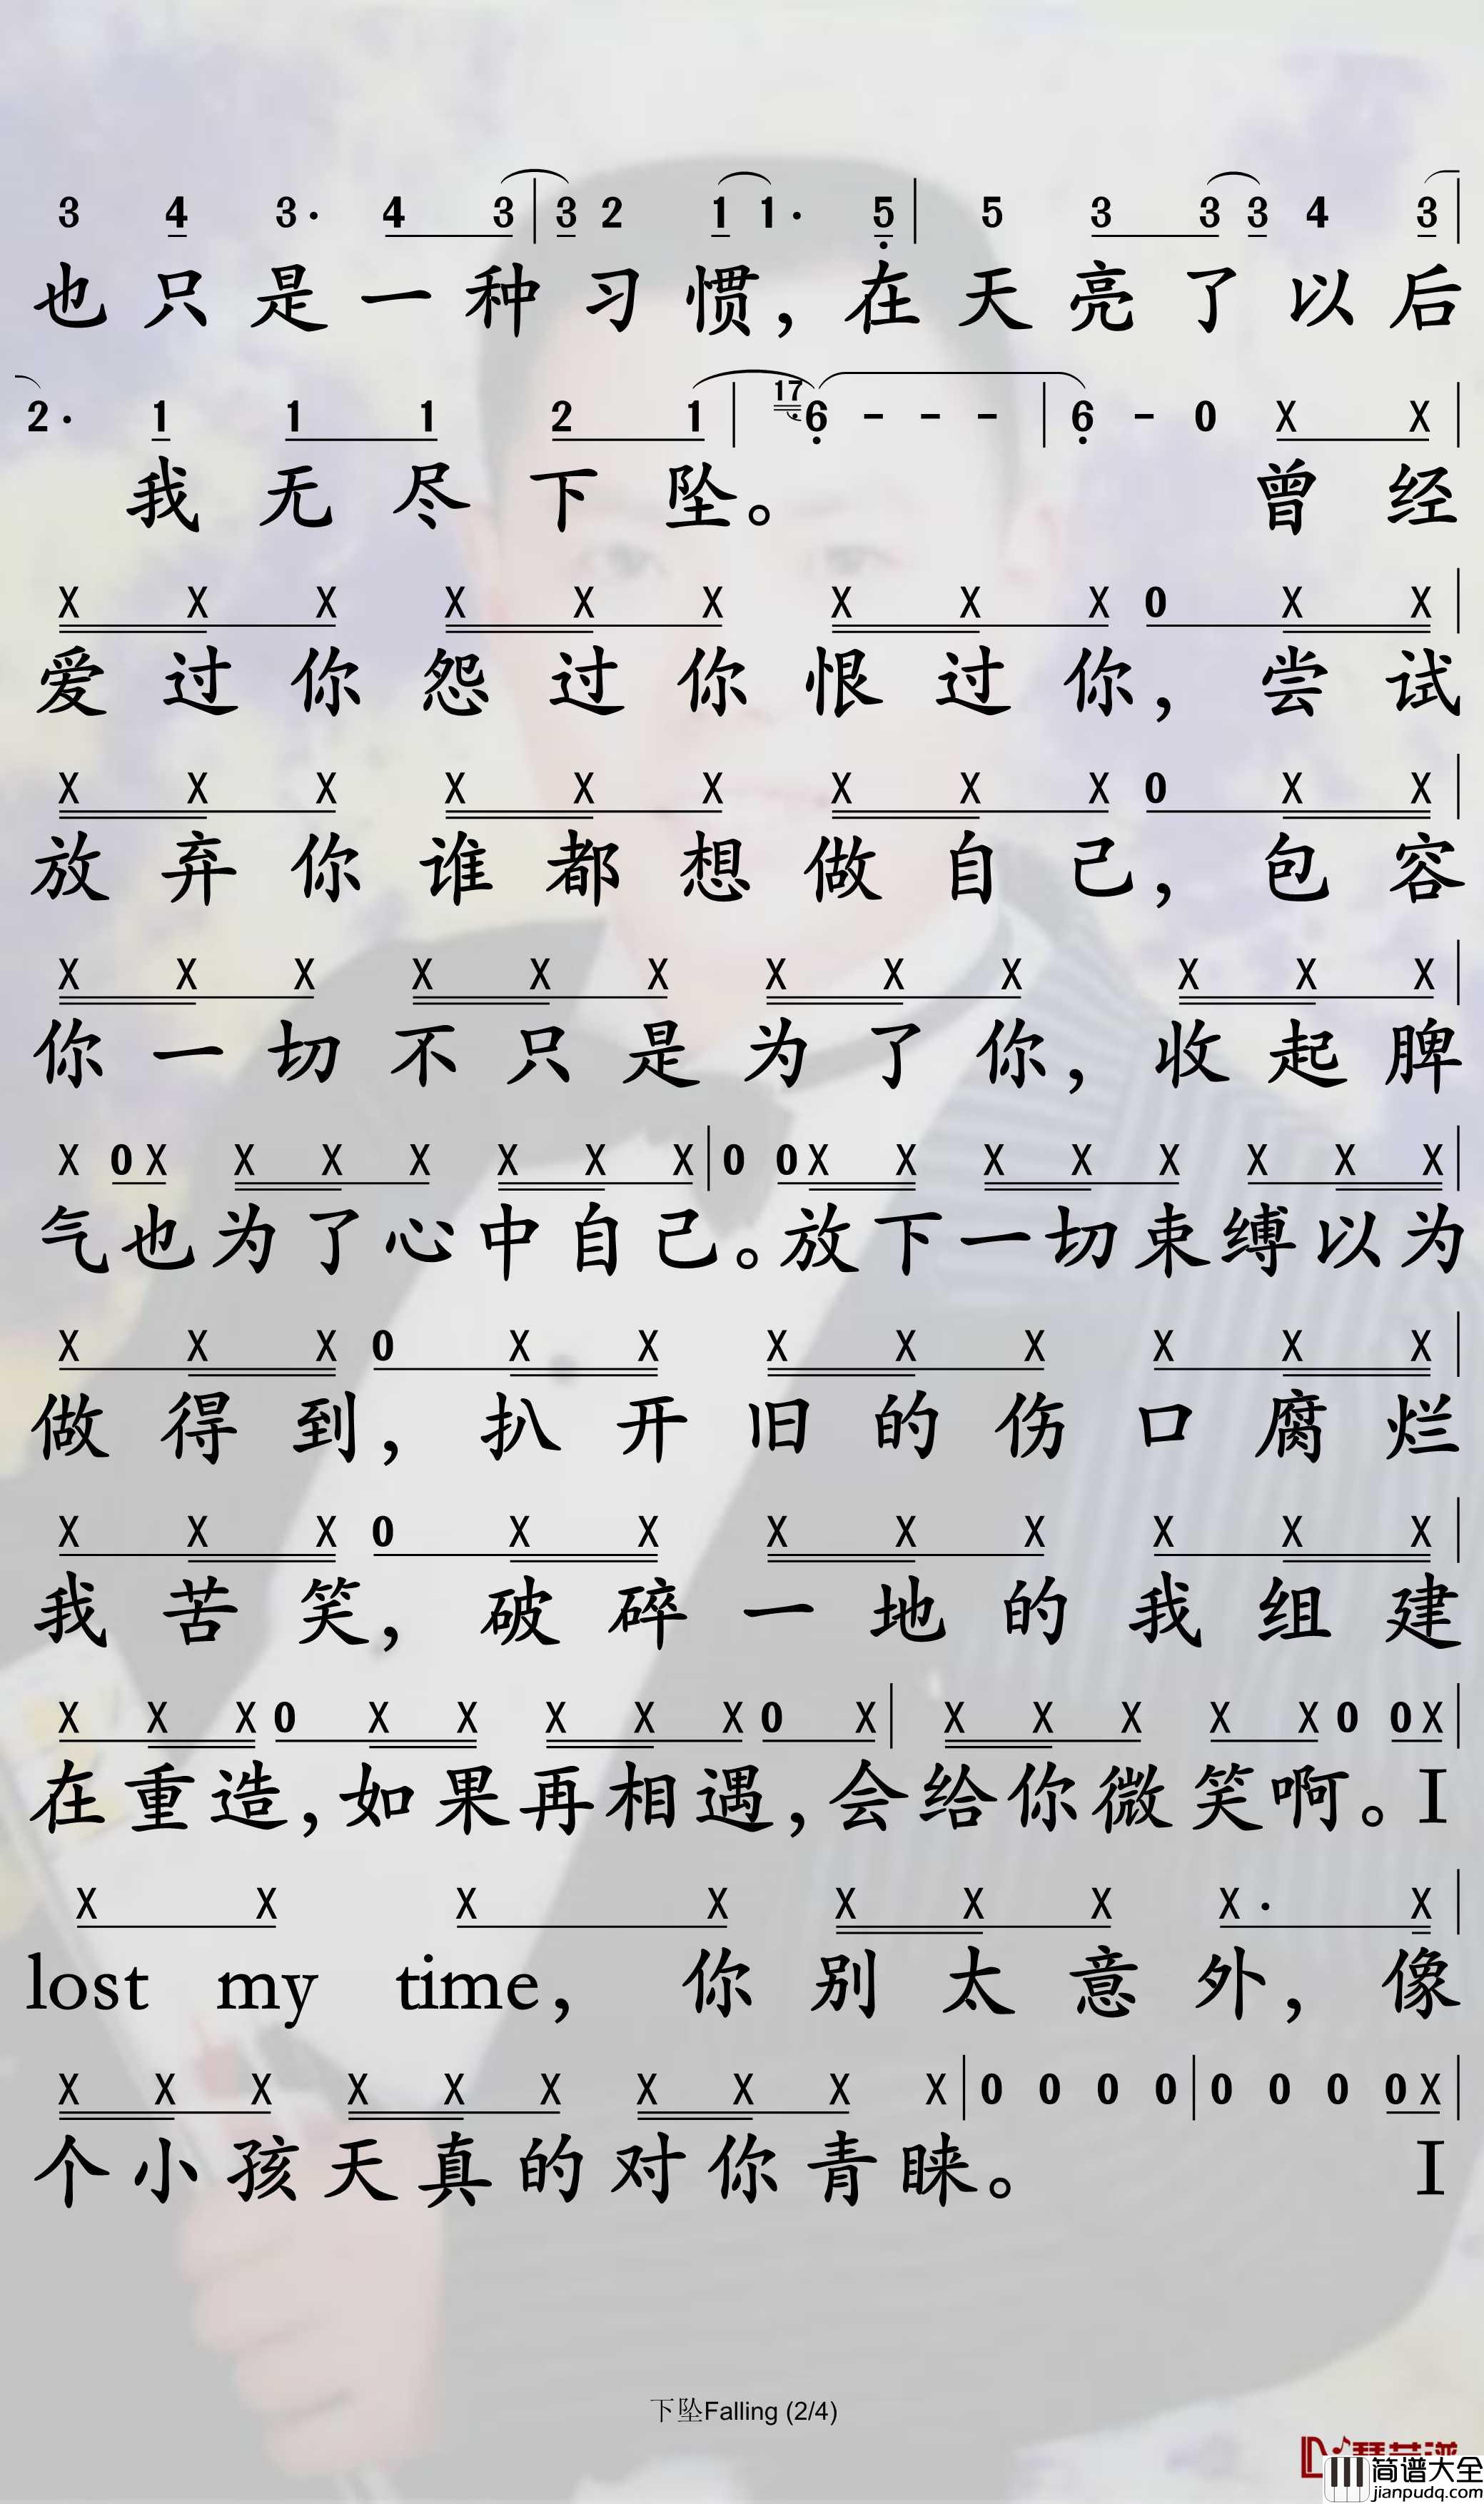 3 4 3· 4 3 | 3 2 1 1· 5 | 5 3 3 3 4 3 |
也只是一种习惯，在天亮了以后
2· 1 1 1 2 1 | 17 6 - - - | 6 - 0 X X |
我无尽下坠。 曾经
X X X X X X X X X 0 X X |
爱过你怨过你恨过你，尝试
X X X X X X X X X 0 X X |
放弃你谁都想做自己，包容
X X X X X X X X X X X X |
你一切不只是为了你，收起脾
X 0 X X X X X X X | 0 0 X X X X X X X X |
气也为了心中自己。放下一切束缚以为
X X X 0 X X X X X X X X |
做得到，扒开旧的伤口腐烂
X X X 0 X X X X X X X X |
我苦笑，破碎一地的我组建
X X X 0 X X X X X 0 X | X X X X X 0 0 X |
在重造，如果再相遇，会给你微笑啊。I
X X X X X X X X· X |
lost my time, 你别太意外，像
X X X X X X X X X X | 0 0 0 0 | 0 0 0 0 X |
个小孩天真的对你青睐。 I
下坠Falling (2/4)
简谱大全
jianpudq.com